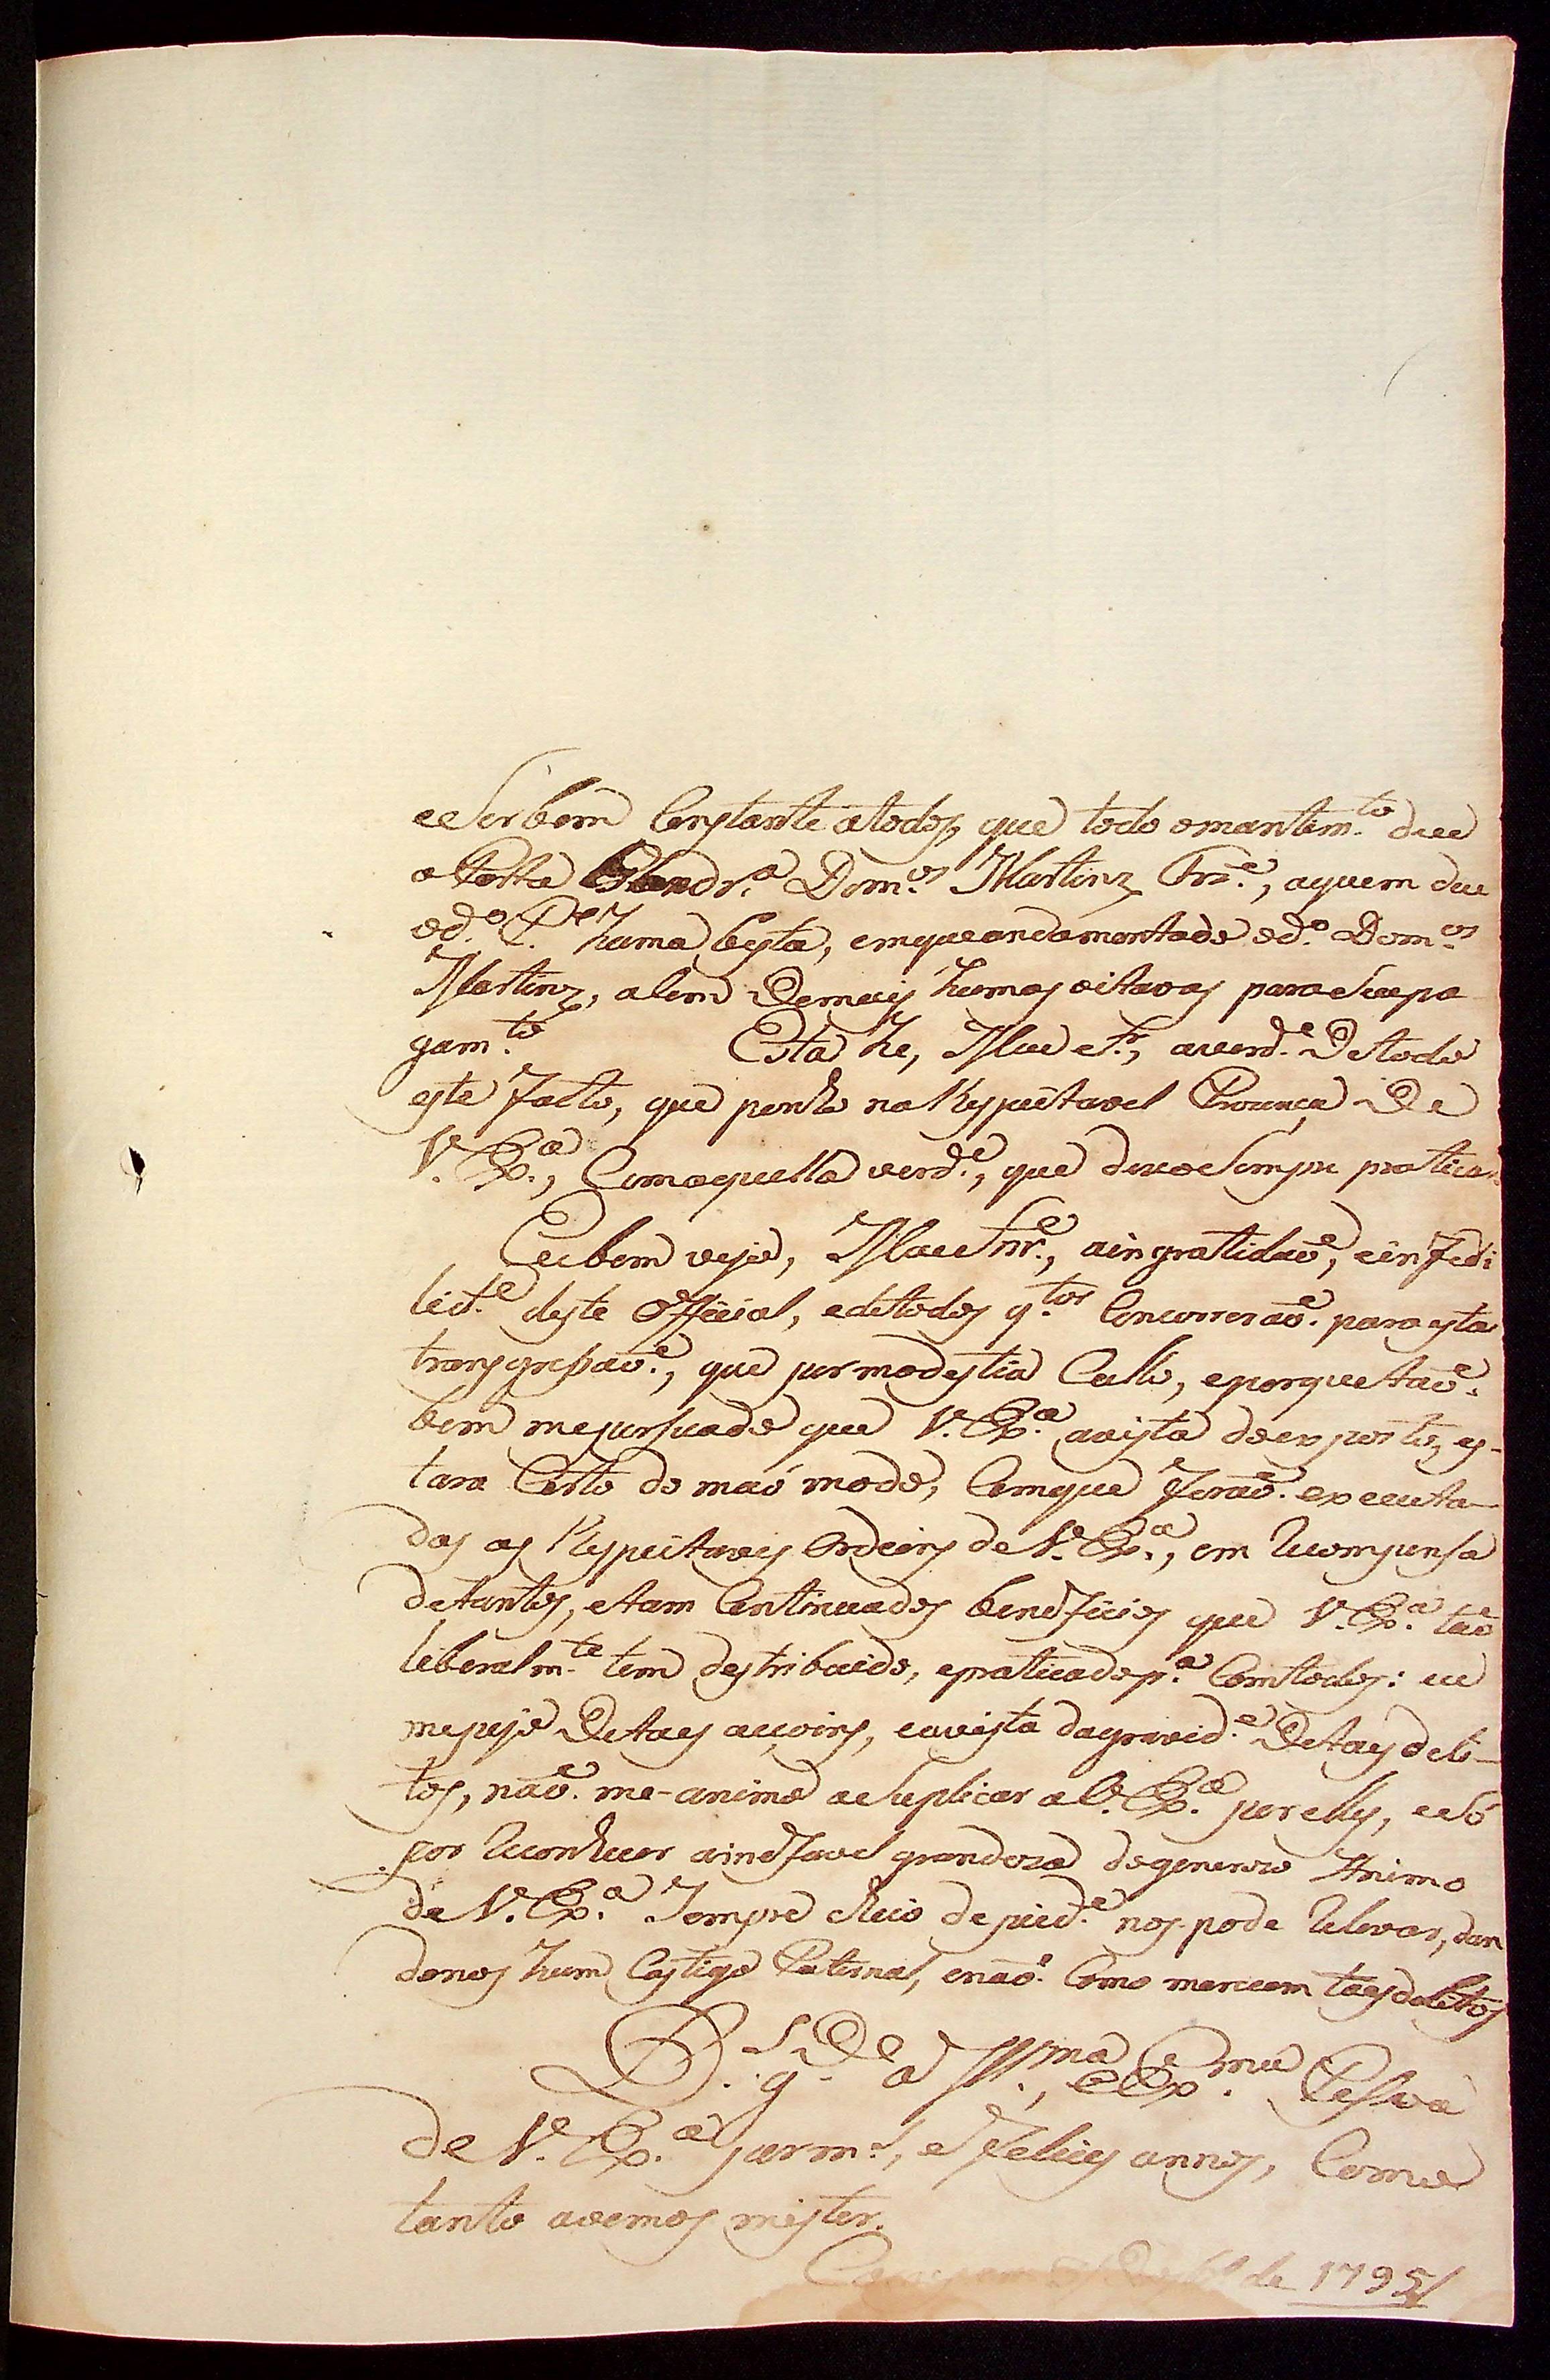 eSer bem Constante atodos, que todo omantim.to deu
o Porta Bandr.a Dom.os Martinz Frr.e, aquem deu
od.o P.e huma besta, emqueandamontado od.o Dom.os
Martinz, alem Demais humas oitavas paraSeupa
gam.to Esta he, Meu Sr., averd.e Detodo
este facto, que ponho naRespeitavel Prezença De
V. Ex.a, Comaquella verd.e, que devoeSempre praticar
Eubem vejo, Meu Snr.e, aingratidaõ, einfedi
lid.e deste Official, edetodos q.tos Concorreraõ. paraesta
transgreſsaõ., que pormodestia Callo, eporquetaõ.
bem mepersuado que V. Ex.a avista doexposto, es-
tara Certo do mao modo, Comque foraõ. executa-
das as Respeitaveis Ordeins de V. Ex.a, em Recompensa
detantos, etam Continuados beneficios que V. Ex.a taõ
liberalm.te tem destribuido, epraticadop.a Comtodos: eu
mepejo Detaes acçoins, eavista dagravid.e Detaes deli-
tos, naõ. me-animo aSuplicar aV. Ex.a por elles, eSó
por Reconhecer ainefavel grandeza dogenerozo Animo
de V. Ex.a Sempre cheio de pied.e nos pode Relevar, dan
donos hum Castigo Paternal, enaõ. Como merecem taesdelitos
D.s g.de a Ill.ma, eEx.ma Pesoa
de V. Ex.a porm.s, eFelices annos, Como
tanto avemos mister.
de 1795